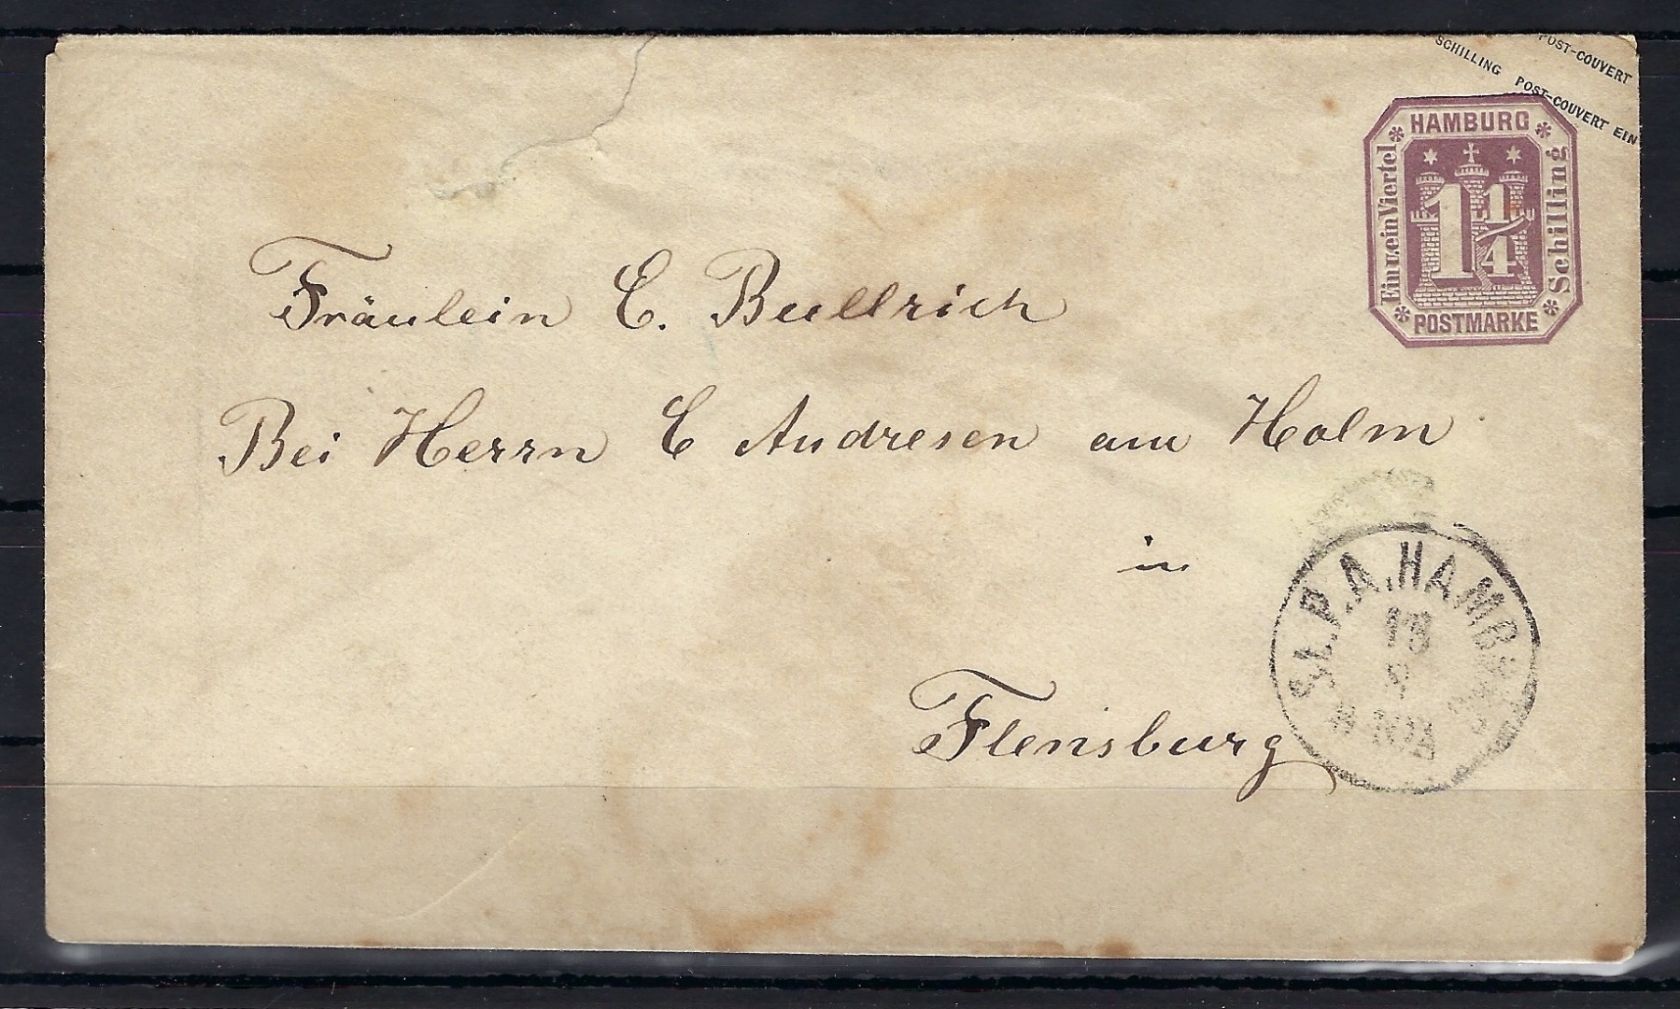 POST-COUVERT
SCHILLING POST-COUVERT EIN
HAMBURG
Ein u. ein Viertel
1 1/4
Schilling
POSTMARKE
Fräulein C. Bullrich
Bei Herrn C Andresen am Holm
in
Flensburg
S.t.P.A.HAMB